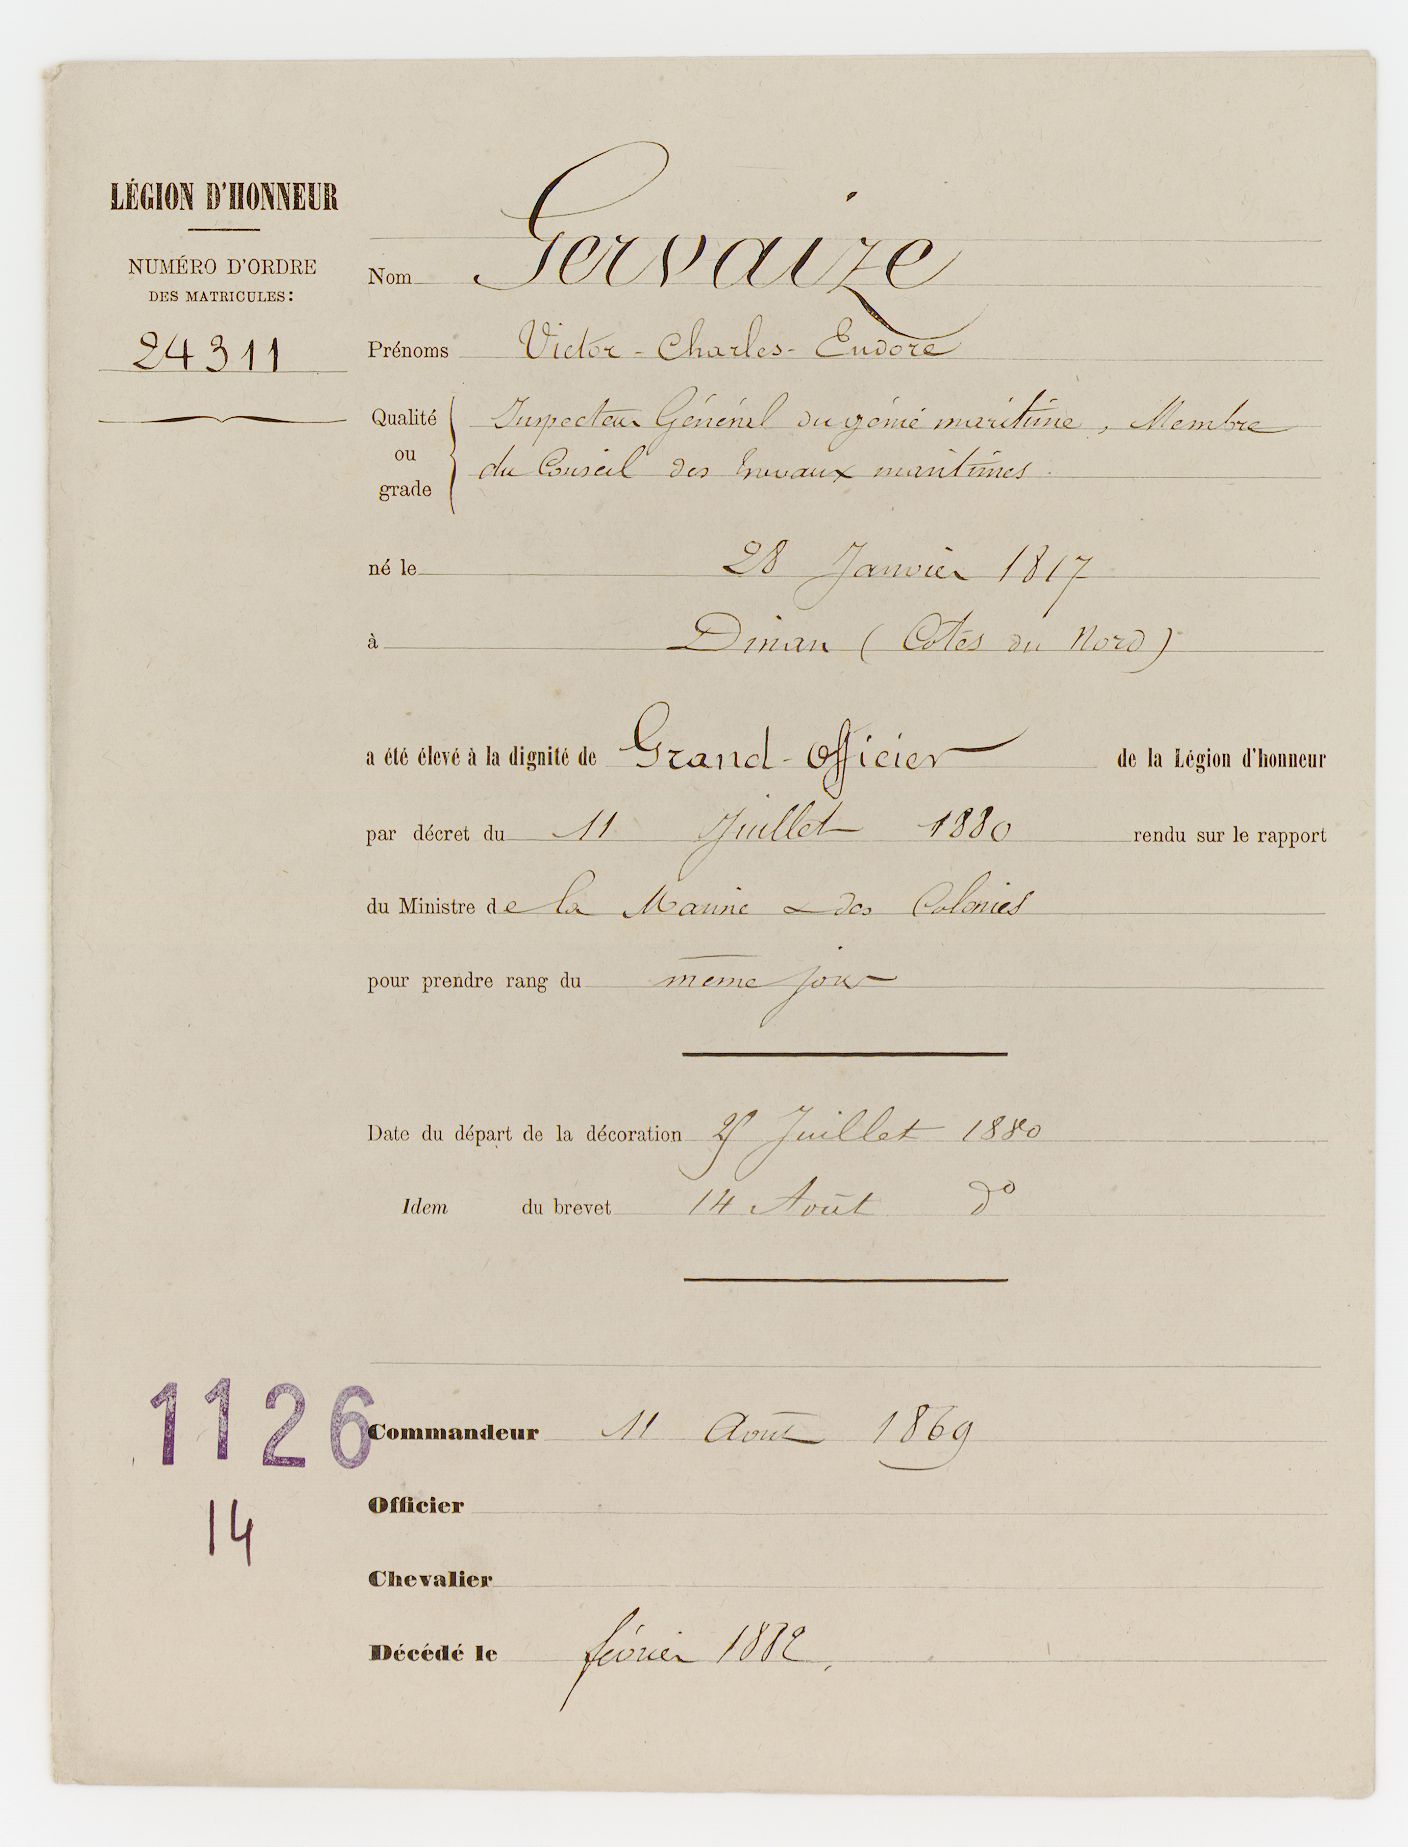 LÉGION D'HONNEUR
NUMÉRO D'ORDRE
DES MATRICULES:
24311
Nom Gervaize
Prénoms Victor-Charles-Eudore
Qualité ou grade Inspecteur Général du génie maritime, Membre
du Conseil des travaux maritimes.
né le 28 Janvier 1817
à Dinan (Côtes du Nord)
a été élevé à la dignité de Grand-Officier de la Légion d'honneur
par décret du 11 Juillet 1880 rendu sur le rapport
du Ministre de la Marine & des Colonies
pour prendre rang du même jour
Date du départ de la décoration Juillet 1880
Idem du brevet 14 Août do
1126
14
Commandeur 11 Août 1869
Officier
Chevalier
Décédé le février 1882.